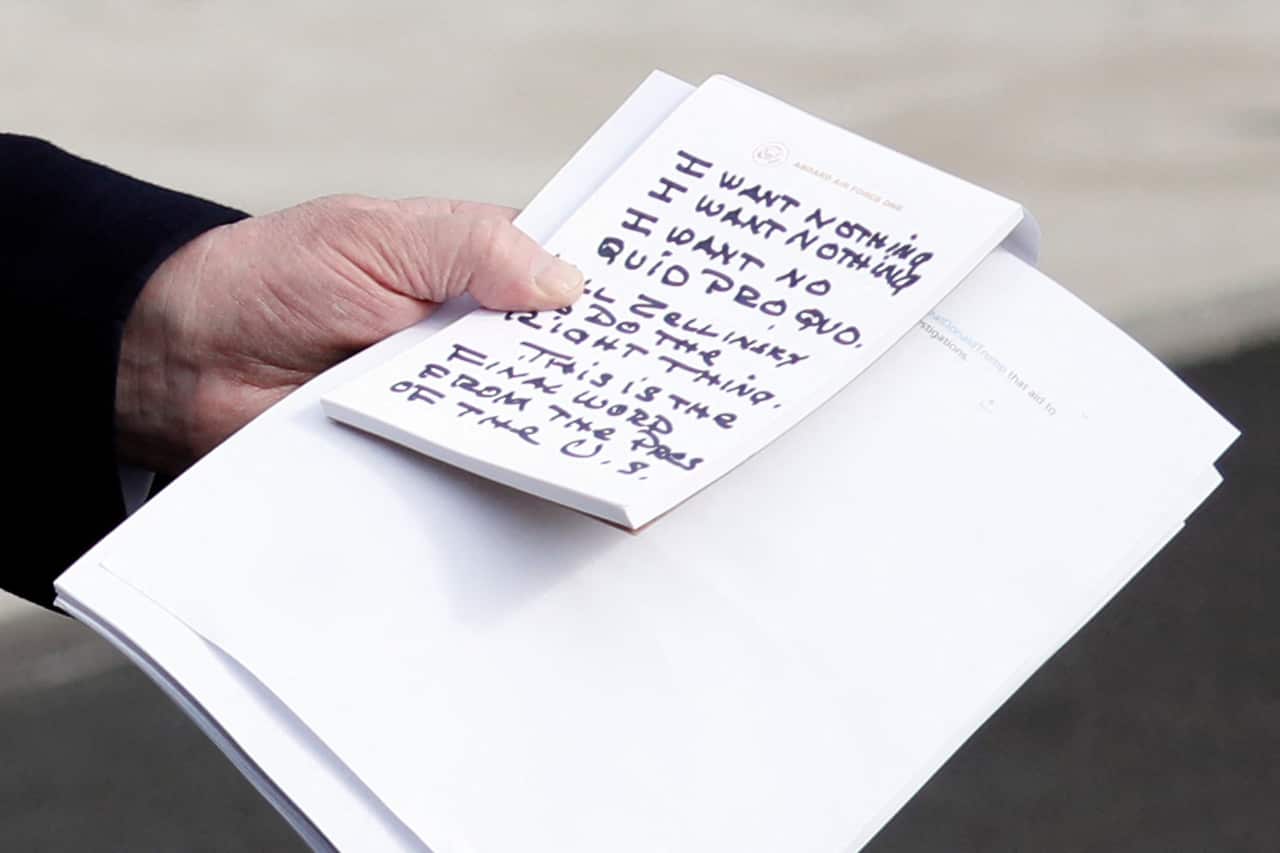 ABOARD AIR FORCE ONE
I WANT NOTHING
I WANT NOTHING
I WANT NO
QUID PRO QUO.
ZELLINSKY
DO THE
RIGHT THING.
THIS IS THE
FINAL WORD
FROM THE PRES
OF THE U.S.
DonaldTrump that aid to
stigations.